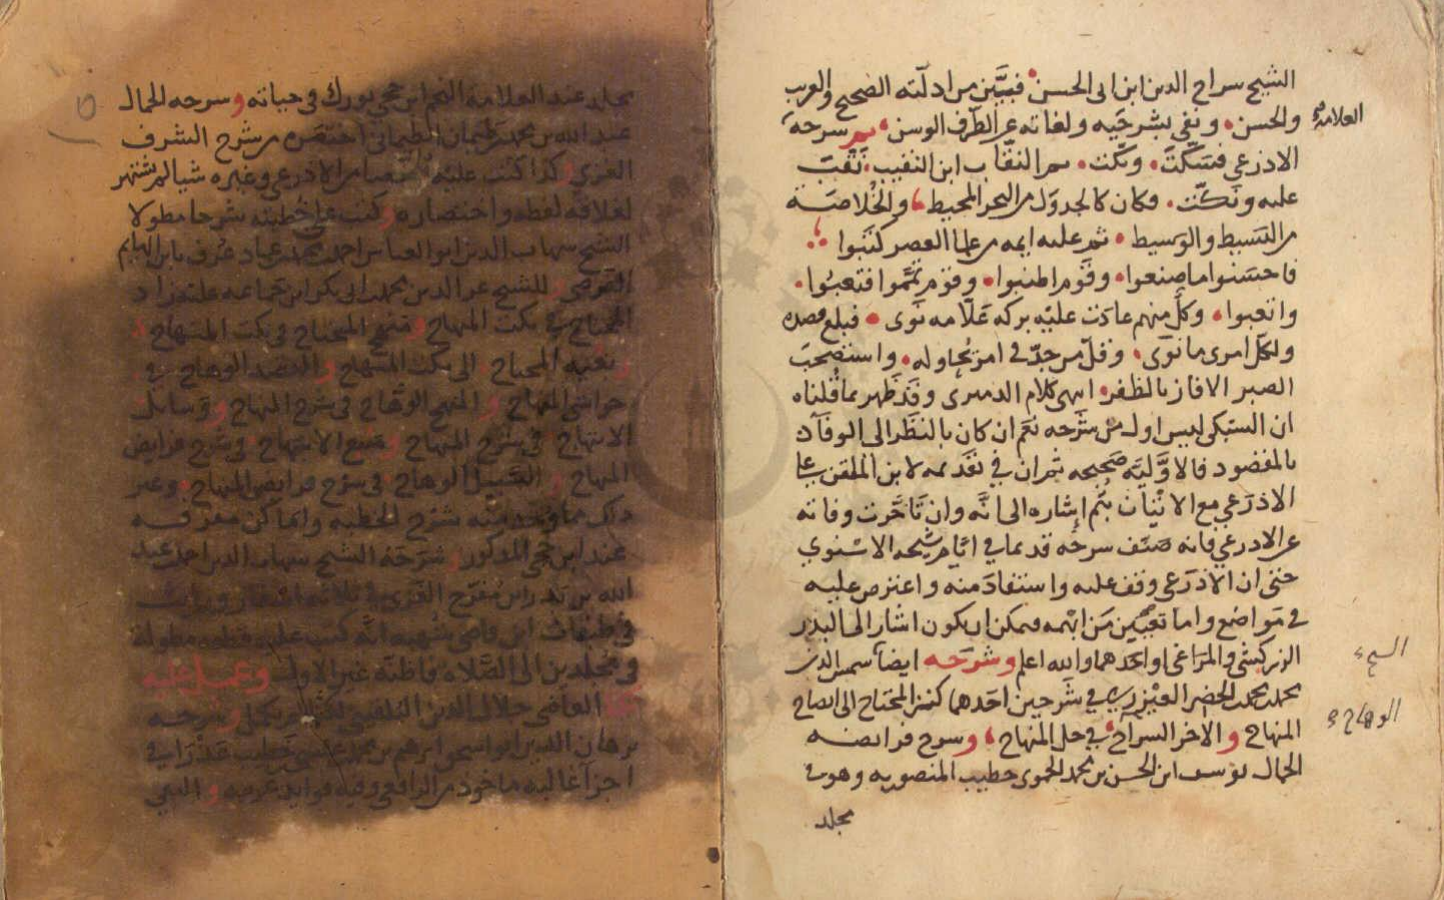 الشيخ سراج الدين ابن ابى الحسن فبيَّن من ادلّته الصحيح والغريب
والحسن ونفى بشرحَيه ولغاته عن الطَّرف الوسن ثم شرحه
العلامة
الاذرعي فتنكّت ونكّت ثم النقّاب ابن النقيب نقّب
عليه ونكّت فكان كالجدوَل من البحر المحيط والخُلاصَة
من البَسيط والوَسيط ثم عليه ايمه من علما العصر كتَبوا
فاحسَنوا ما صنعوا وقَوم اطنبوا وقوم تمَّموا فتعبُوا
واتعبوا وكلّ منهم عادَت عليه بركه علّامه نوى فبلغ قصده
ولكل امرى ما نوَى وقلّ من جدّ في امر يُحاوله واستصحبَ
الصبر الا فاز بالظفر انتهى كلام الدميرى وقد ظهر بما قلناه
ان السّبكى ليس اول من شرَحه نعَم ان كان بالنظر الى الوفاة
بالمقصود فالاوَّليّه صَحيحه ثم ان في تقدمه لابن الملقن على
الاذرَعي مع الاتيان بثم اشاره الى انّه وان تأخّرت وفاته
عن الاذرعي فانه صنّف شرحه قديما في ايّام شيخه الاسنوي
حتى ان الاذرَعي وقف عليه واستفادَ منه واعترض عليه
في مَواضع واما تعيين من ابهمه فيمكن ان يكون اشار الى البدر
الزركشى والمراغى او احدهما والله اعلم وشرَحه ايضا شمس الدين
الشيخ
محمد بن محمد بن الخضر العيزري في شَرحين احَدهما كنز المحتاج الى ايضاح
المنهاج والاخر السراج في حل المنهاج وشرح فرائضه
الوهاج
الجمال يوسف ابن الحسن بن محمد الحموى خطيب المنصوريه وهو في
مجلد
مجلد عند العلامة النجم ابن حجي بورك في حياته وشرحه الجمال
عبد الله بن محمد بن طيمان الطيمانى اختصره من شرح الشرف
الغزي وكذا كتب عليه من الاذرعي وغيره شيا لم يشتهر
لغلاقه لفظه واختصاره وكتب على خطبته شرحا مطولا
الشيخ شهاب الدين ابو العباس احمد بن محمد بن عماد عُرف بابن الهايم
الفرضى وللشيخ عز الدين محمد بن ابى بكر ابن جماعه عليه زاد
المحتاج في نكت المنهاج ومنهج المحتاج في نكت المنهاج
وبغيه المحتاج الى نكت المنهاج والقصد الوهاج في
حواشى المنهاج والمنهج الوهّاج في شرح المنهاج ووسايل
الابتهاج في شرح المنهاج ومنبع الابتهاج في شرح فرايض
المنهاج والسّبيل الوهاج في شرح فرايض المنهاج وغير
ذلك مما وجد منه شرح الخطبه وانما كن مفرقه
عند ابن حجي المذكور وشرَحَهُ الشيخ شهاب الدين احمد بن عبد
الله بن بدر ابن مفرّح الغَزي في ثلاثه اسفار ورايت
في طبقات ابن قاضى شهبه انّه كتب عليه قطعه مطوله
في مجلدين الى الصّلاه فاظنّه غير الاول وعمل عليه
القاضى جلال الدين البلقينى لم يكمل وشرحه
برهان الدين ابو اسحق ابرهيم بن خطيب عذرا في
اجزآ غالبه ماخوذ من الرافعي وفيه فوايد غريبه والتقي